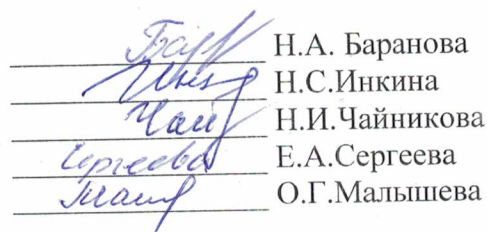 Бар Н.А. Баранова
Инк Н.С.Инкина
Чай Н.И.Чайникова
Сергеева Е.А.Сергеева
О.Г.Малышева